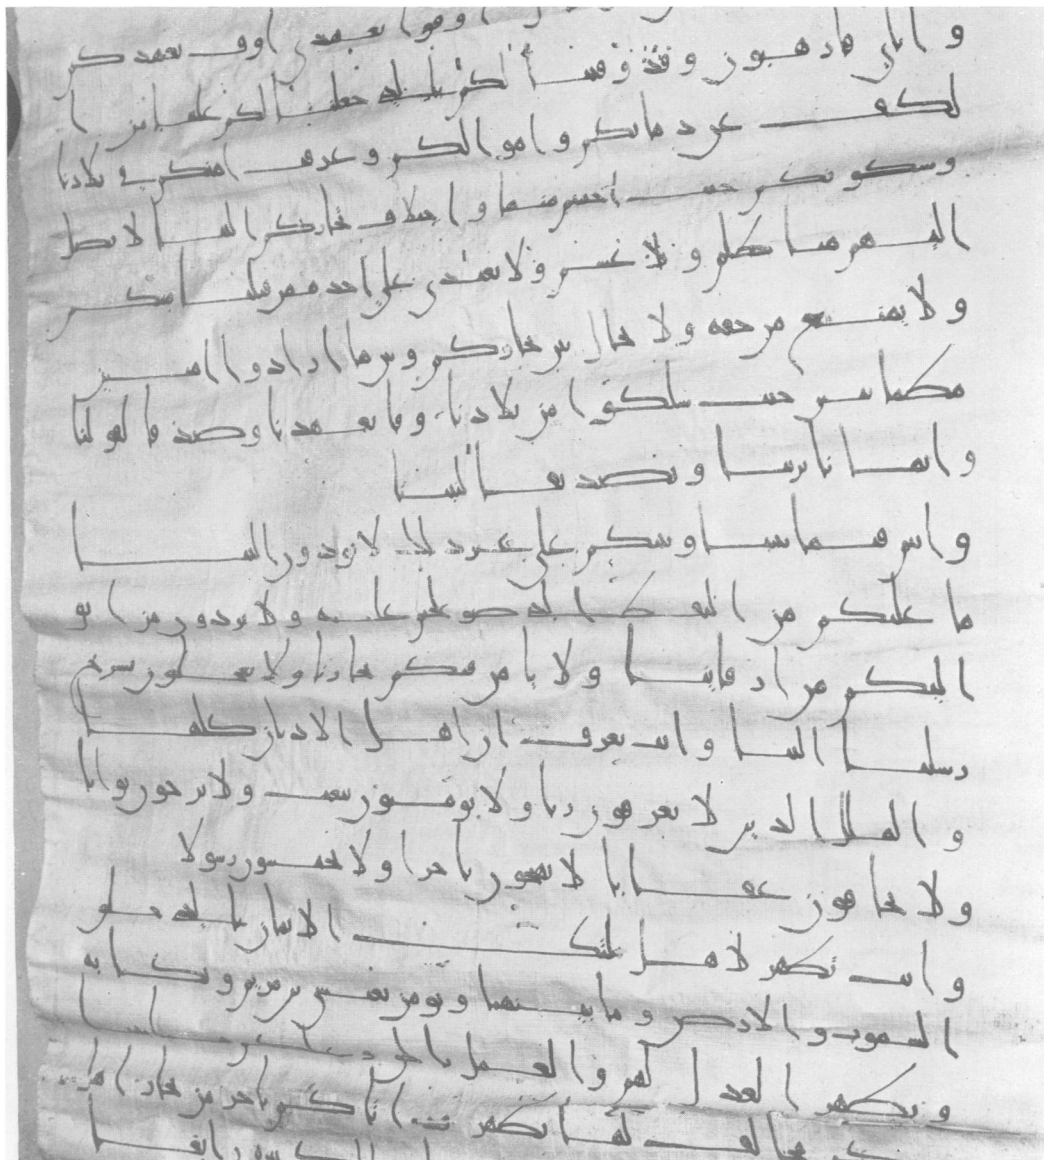 وفوا بعهدي اوف بعهدكم
واياي فارهبون وقد وفينا لكم بالذي جعلنا لكم على انفسنا من
الكف عن دمائكم واموالكم وعرفت امنكم في بلادنا
وسكونكم حيث احببتم منها واختلاف تجاركم الينا لا يصل
اليهم منا ظلم ولا غشم ولا يعتدى على احد ممن قبلنا منكم
ولا يمنع من حقه ولا يحال بين تجاركم وبين ما ارادوا امنين
مطمانين حيث سلكوا من بلادنا وفا بعهدنا وصدقا لقولنا
وايمانا بربنا وتصديقا لنبينا
وانتم فيما بيننا وبينكم على غير ذلك لا تودون الينا
ما عليكم من البقط الذي صولحتم عليه ولا تردون من ابق
اليكم من ارقاينا ولا يامن فيكم تجارنا ولا تعجلون تسريح
رسلنا الينا وانت تعرف ان اهل الاديان كلها
والملل الذين لا يعرفون ربا ولا يومنون ببعث ولا يرجون ثوابا
ولا يخافون عقابا لا يهيجون تاجرا ولا يحبسون رسولا
وانت تظهر لاهل ملتك الايمان بالذي خلق
السموت والارض وما بينهما وتومن بعيسى بن مريم وبكتابه
وتظهر العدل لهم والعمل بالحق